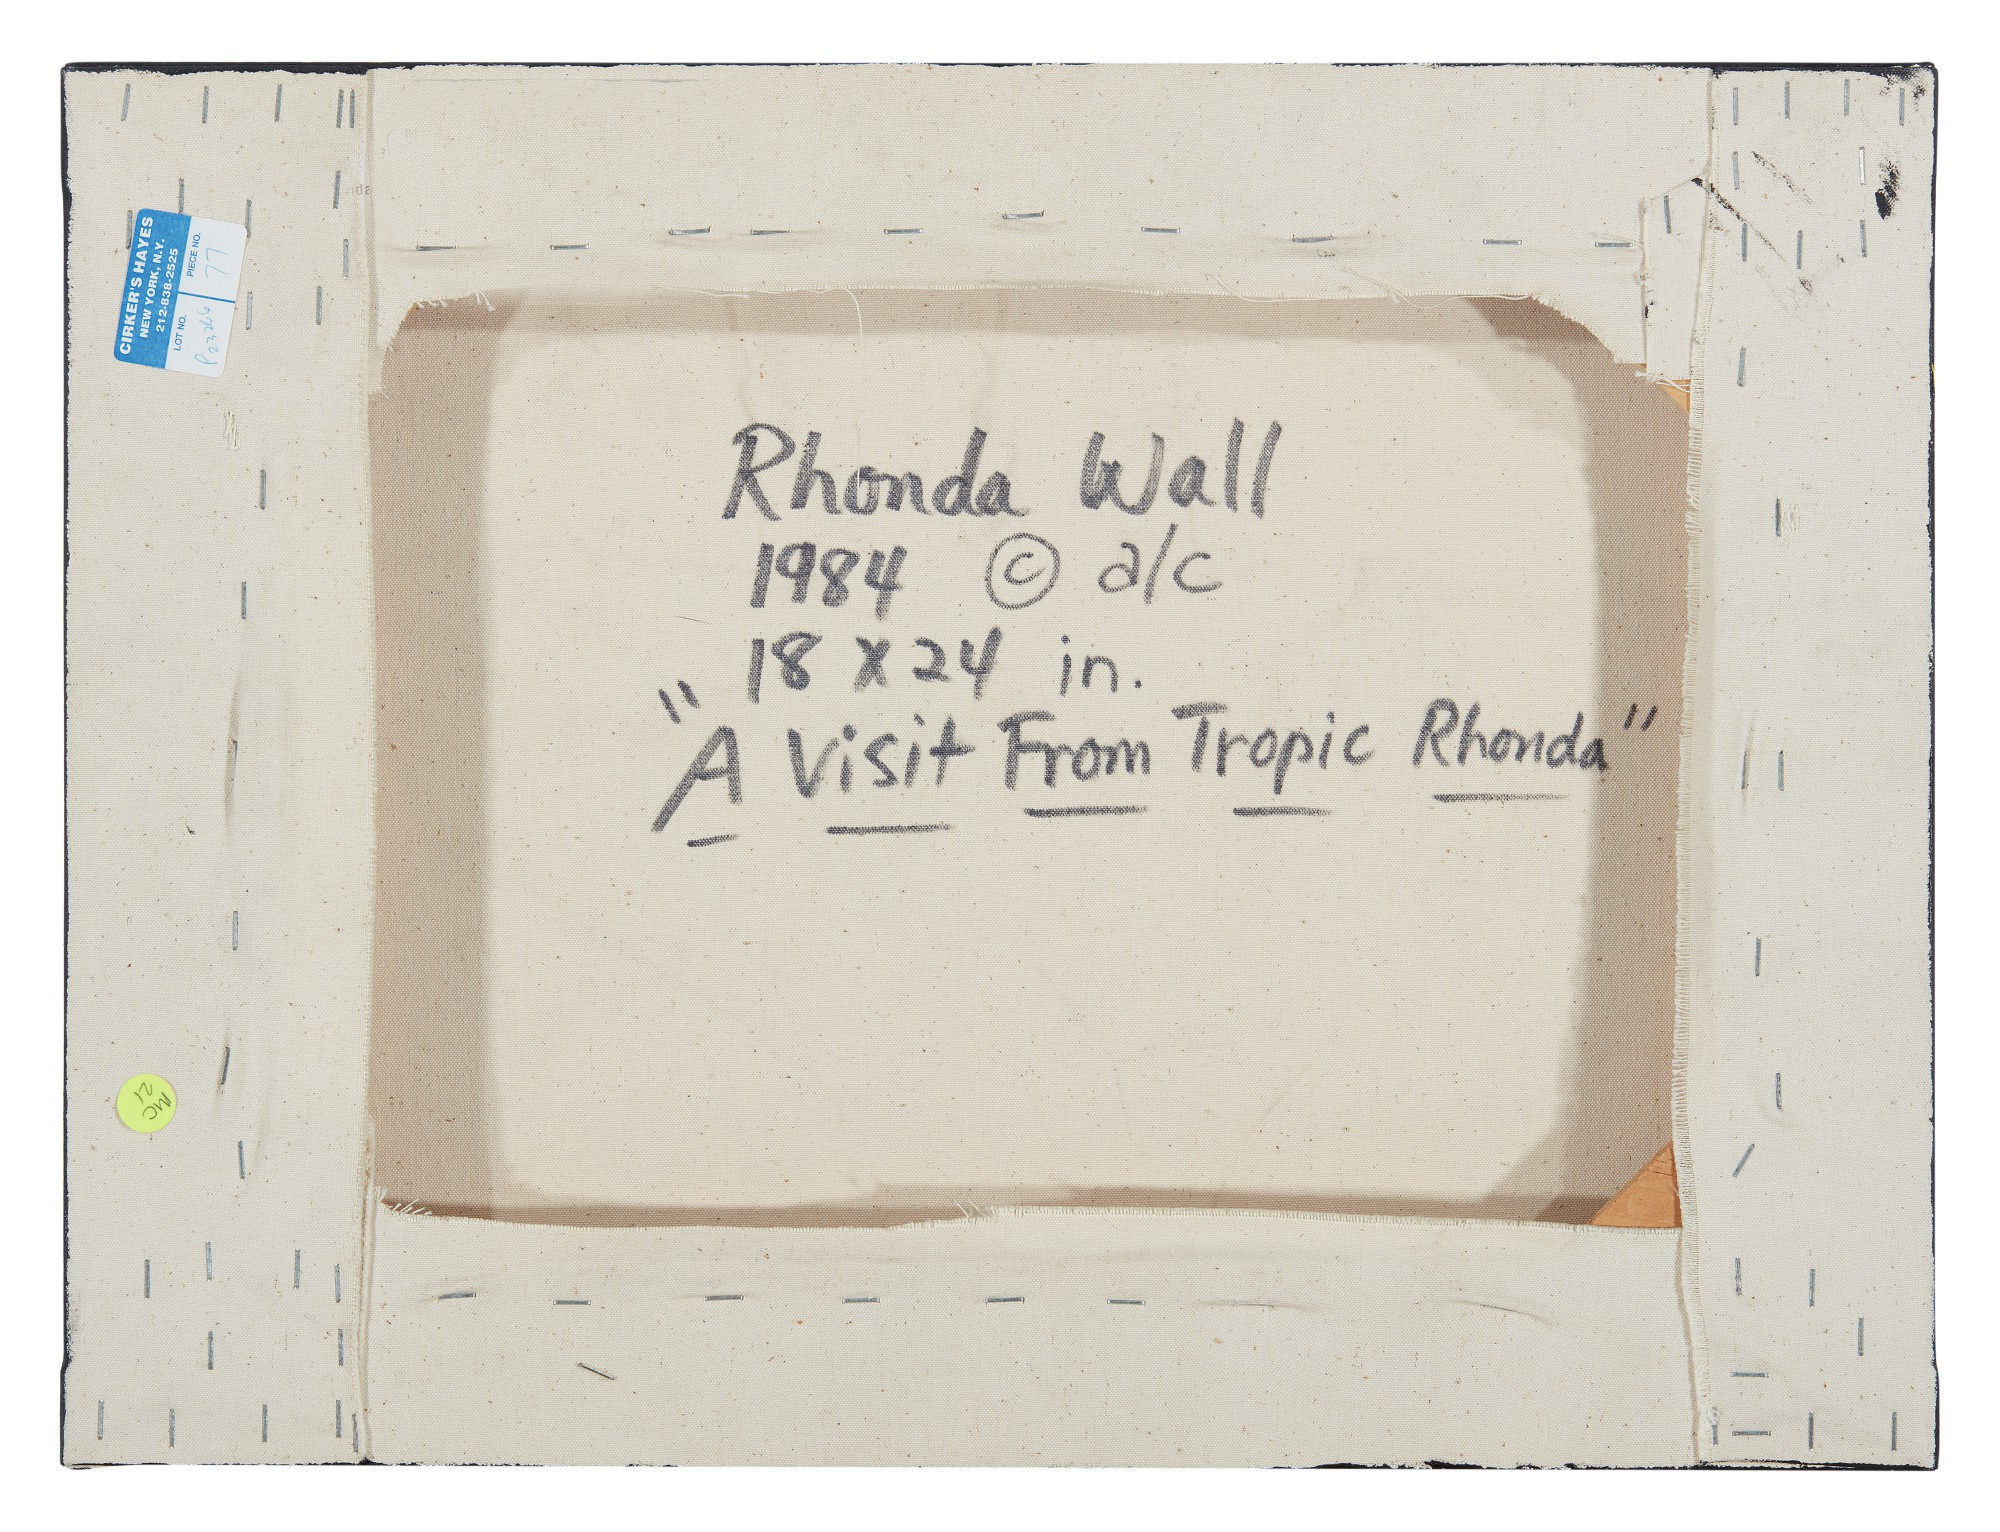 Rhonda Wall
1984 © a/c
18 x 24 in.
"A Visit From Tropic Rhonda"
CIRKER'S HAYES
NEW YORK, N.Y.
212-838-2525
LOT NO.
PIECE NO. 77
MC
21